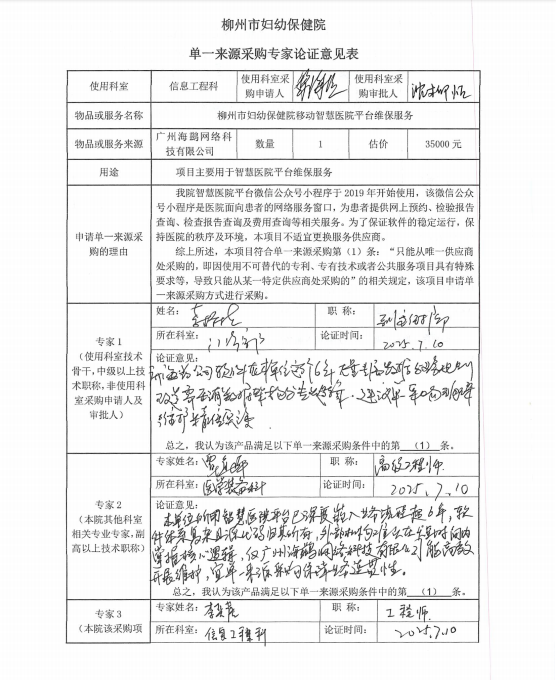 柳州市妇幼保健院
单一来源采购专家论证意见表
使用科室 信息工程科 使用科室采购申请人 使用科室采购审批人
物品或服务名称 柳州市妇幼保健院移动智慧医院平台维保服务
物品或服务来源 广州海鹚网络科技有限公司 数量 1 估价 35000 元
用途 项目主要用于智慧医院平台维保服务
申请单一来源采购的理由
我院智慧医院平台微信公众号小程序于 2019 年开始使用，该微信公众
号小程序是医院面向患者的网络服务窗口，为患者提供网上预约、检验报告
查询、检查报告查询及费用查询等相关服务。为了保证软件的稳定运行，保
持医院的秩序及环境，本项目不适宜更换服务供应商。
综上所述，本项目符合单一来源采购第（1）条：“只能从唯一供应商
处采购的，即因使用不可替代的专利、专有技术或者公共服务项目具有特殊
要求等，导致只能从某一特定供应商处采购的”的相关规定，该项目申请单
一来源采购方式进行采购。
专家 1
（使用科室技术
骨干，中级以上技
术职称，非使用科
室采购申请人及
审批人）
姓名： 职 称：
所在科室： 门诊部 论证时间： 2025.7.10
论证意见：
总之，我认为该产品满足以下单一来源采购条件中的第 （1） 条。
专家 2
（本院其他科室
相关专业专家，副
高以上技术职称）
专家姓名： 职 称： 高级工程师
所在科室： 医学装备科 论证时间： 2025.7.10
论证意见：
本单位所用智慧医院平台已深度嵌入业务流程超6年，软
件体系复杂且源代码归其所有，外部机构难以在短时间内
掌握核心逻辑，仅广州海鹚网络科技有限公司能高效
开展维护，宜单一来源采购保障业务连贯性。
总之，我认为该产品满足以下单一来源采购条件中的第 （1） 条。
专家 3
（本院该采购项
专家姓名： 职 称： 工程师
所在科室： 信息工程科 论证时间： 2025.7.10